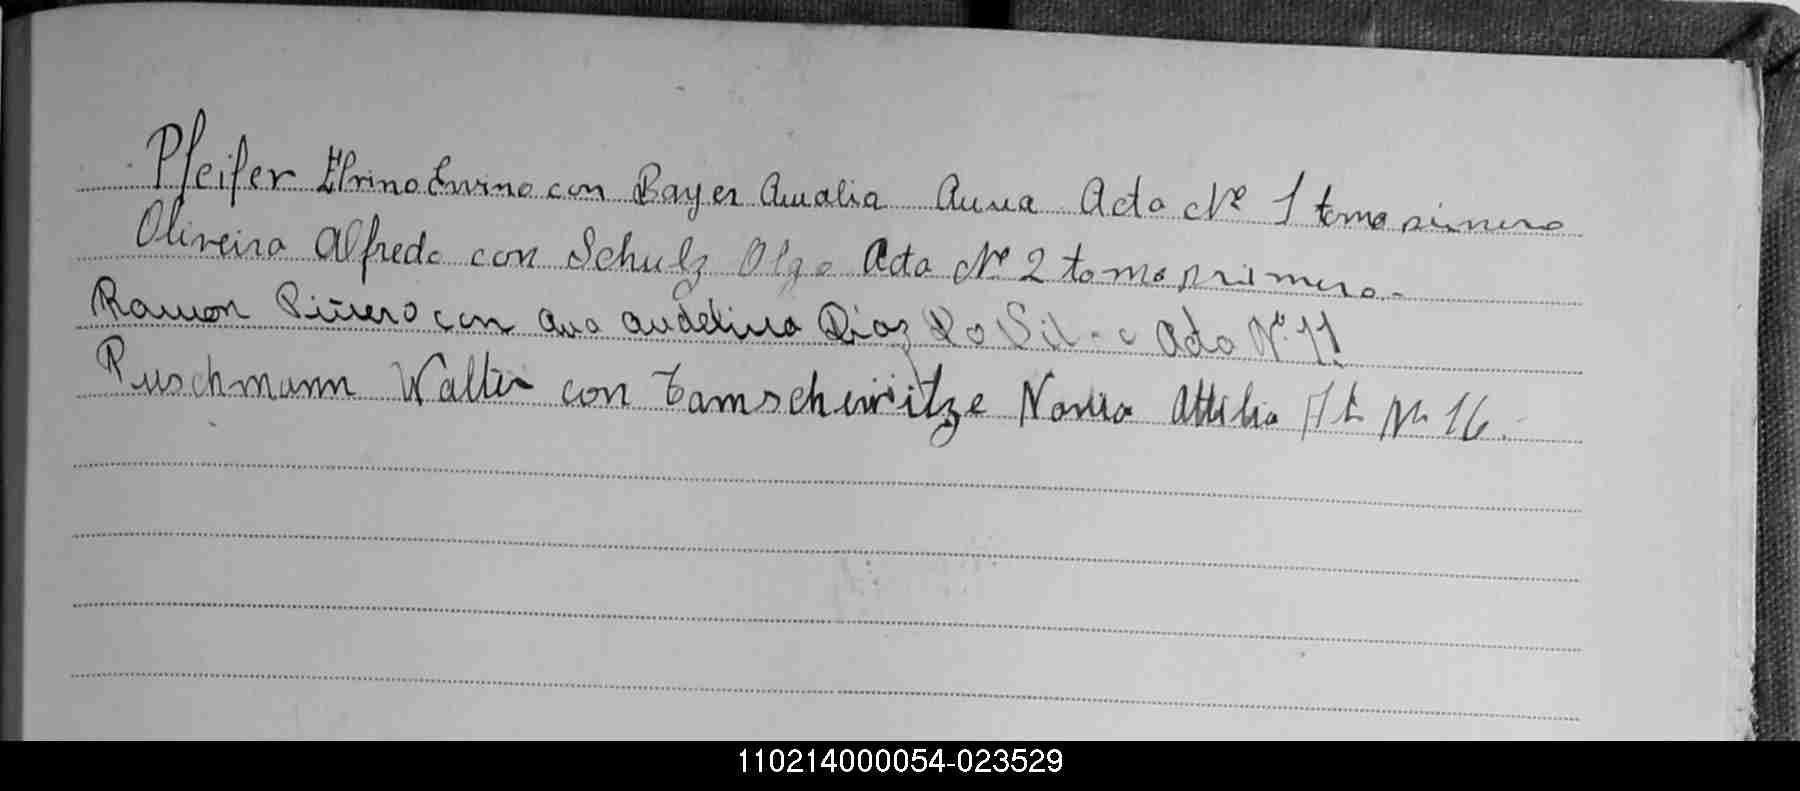 Pfeifer Elrino Erwino con Bayer Amalia Anna Acta Nº 1 tomo primero
Oliveira Alfredo con Schulz Olga Acta Nº 2 tomo primero.
Ramon Piñero con Ana Audelina Diaz Da Silva Acta Nº 11
Puschmann Walter con Tamschewitze Norma Attilia At Nº 16.
110214000054-023529